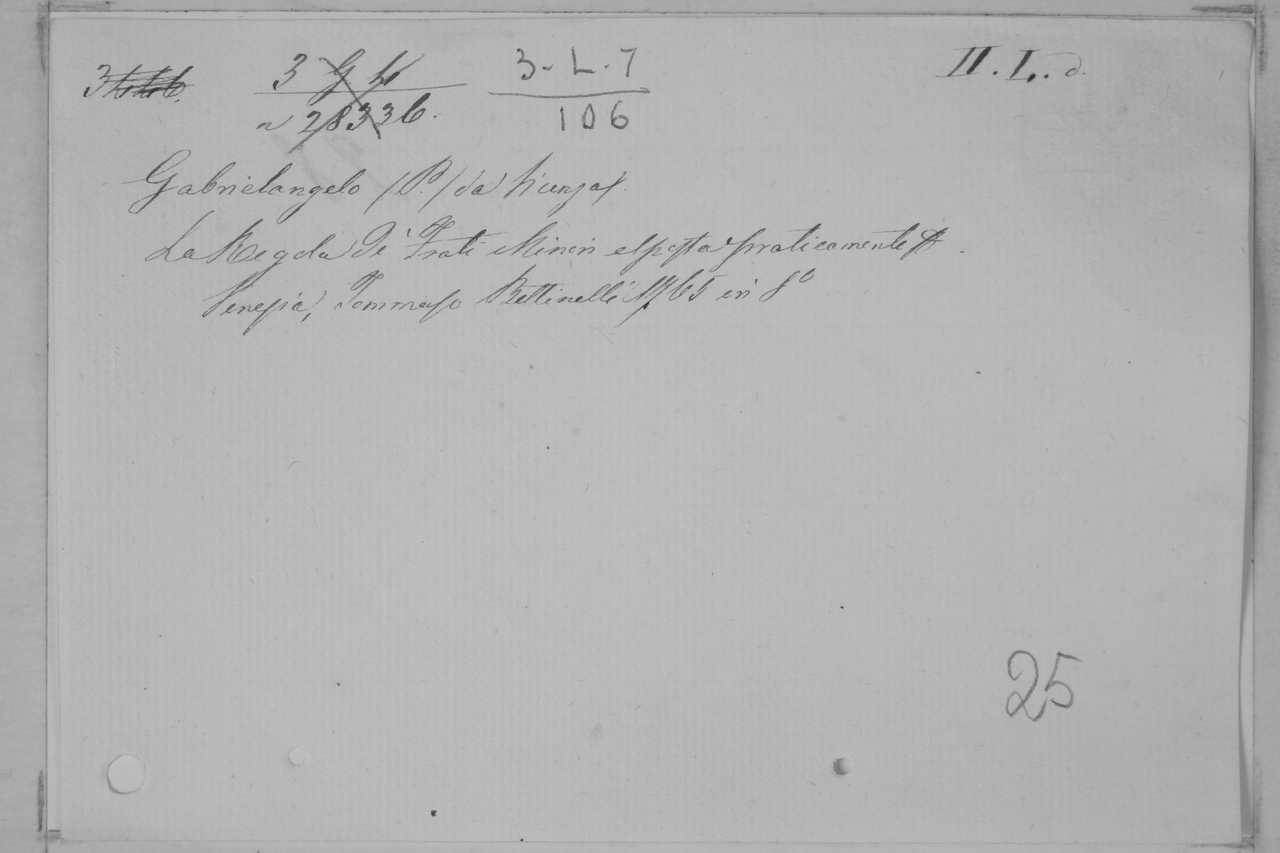 3 3-L-7 II. I. d.
n 28336. 106
Gabrielangelo (P.) da Vicenza
La Regola de' Frati Minori esposta praticamente
Venezia, Tommaso Bettinelli 1765 in 8º
25